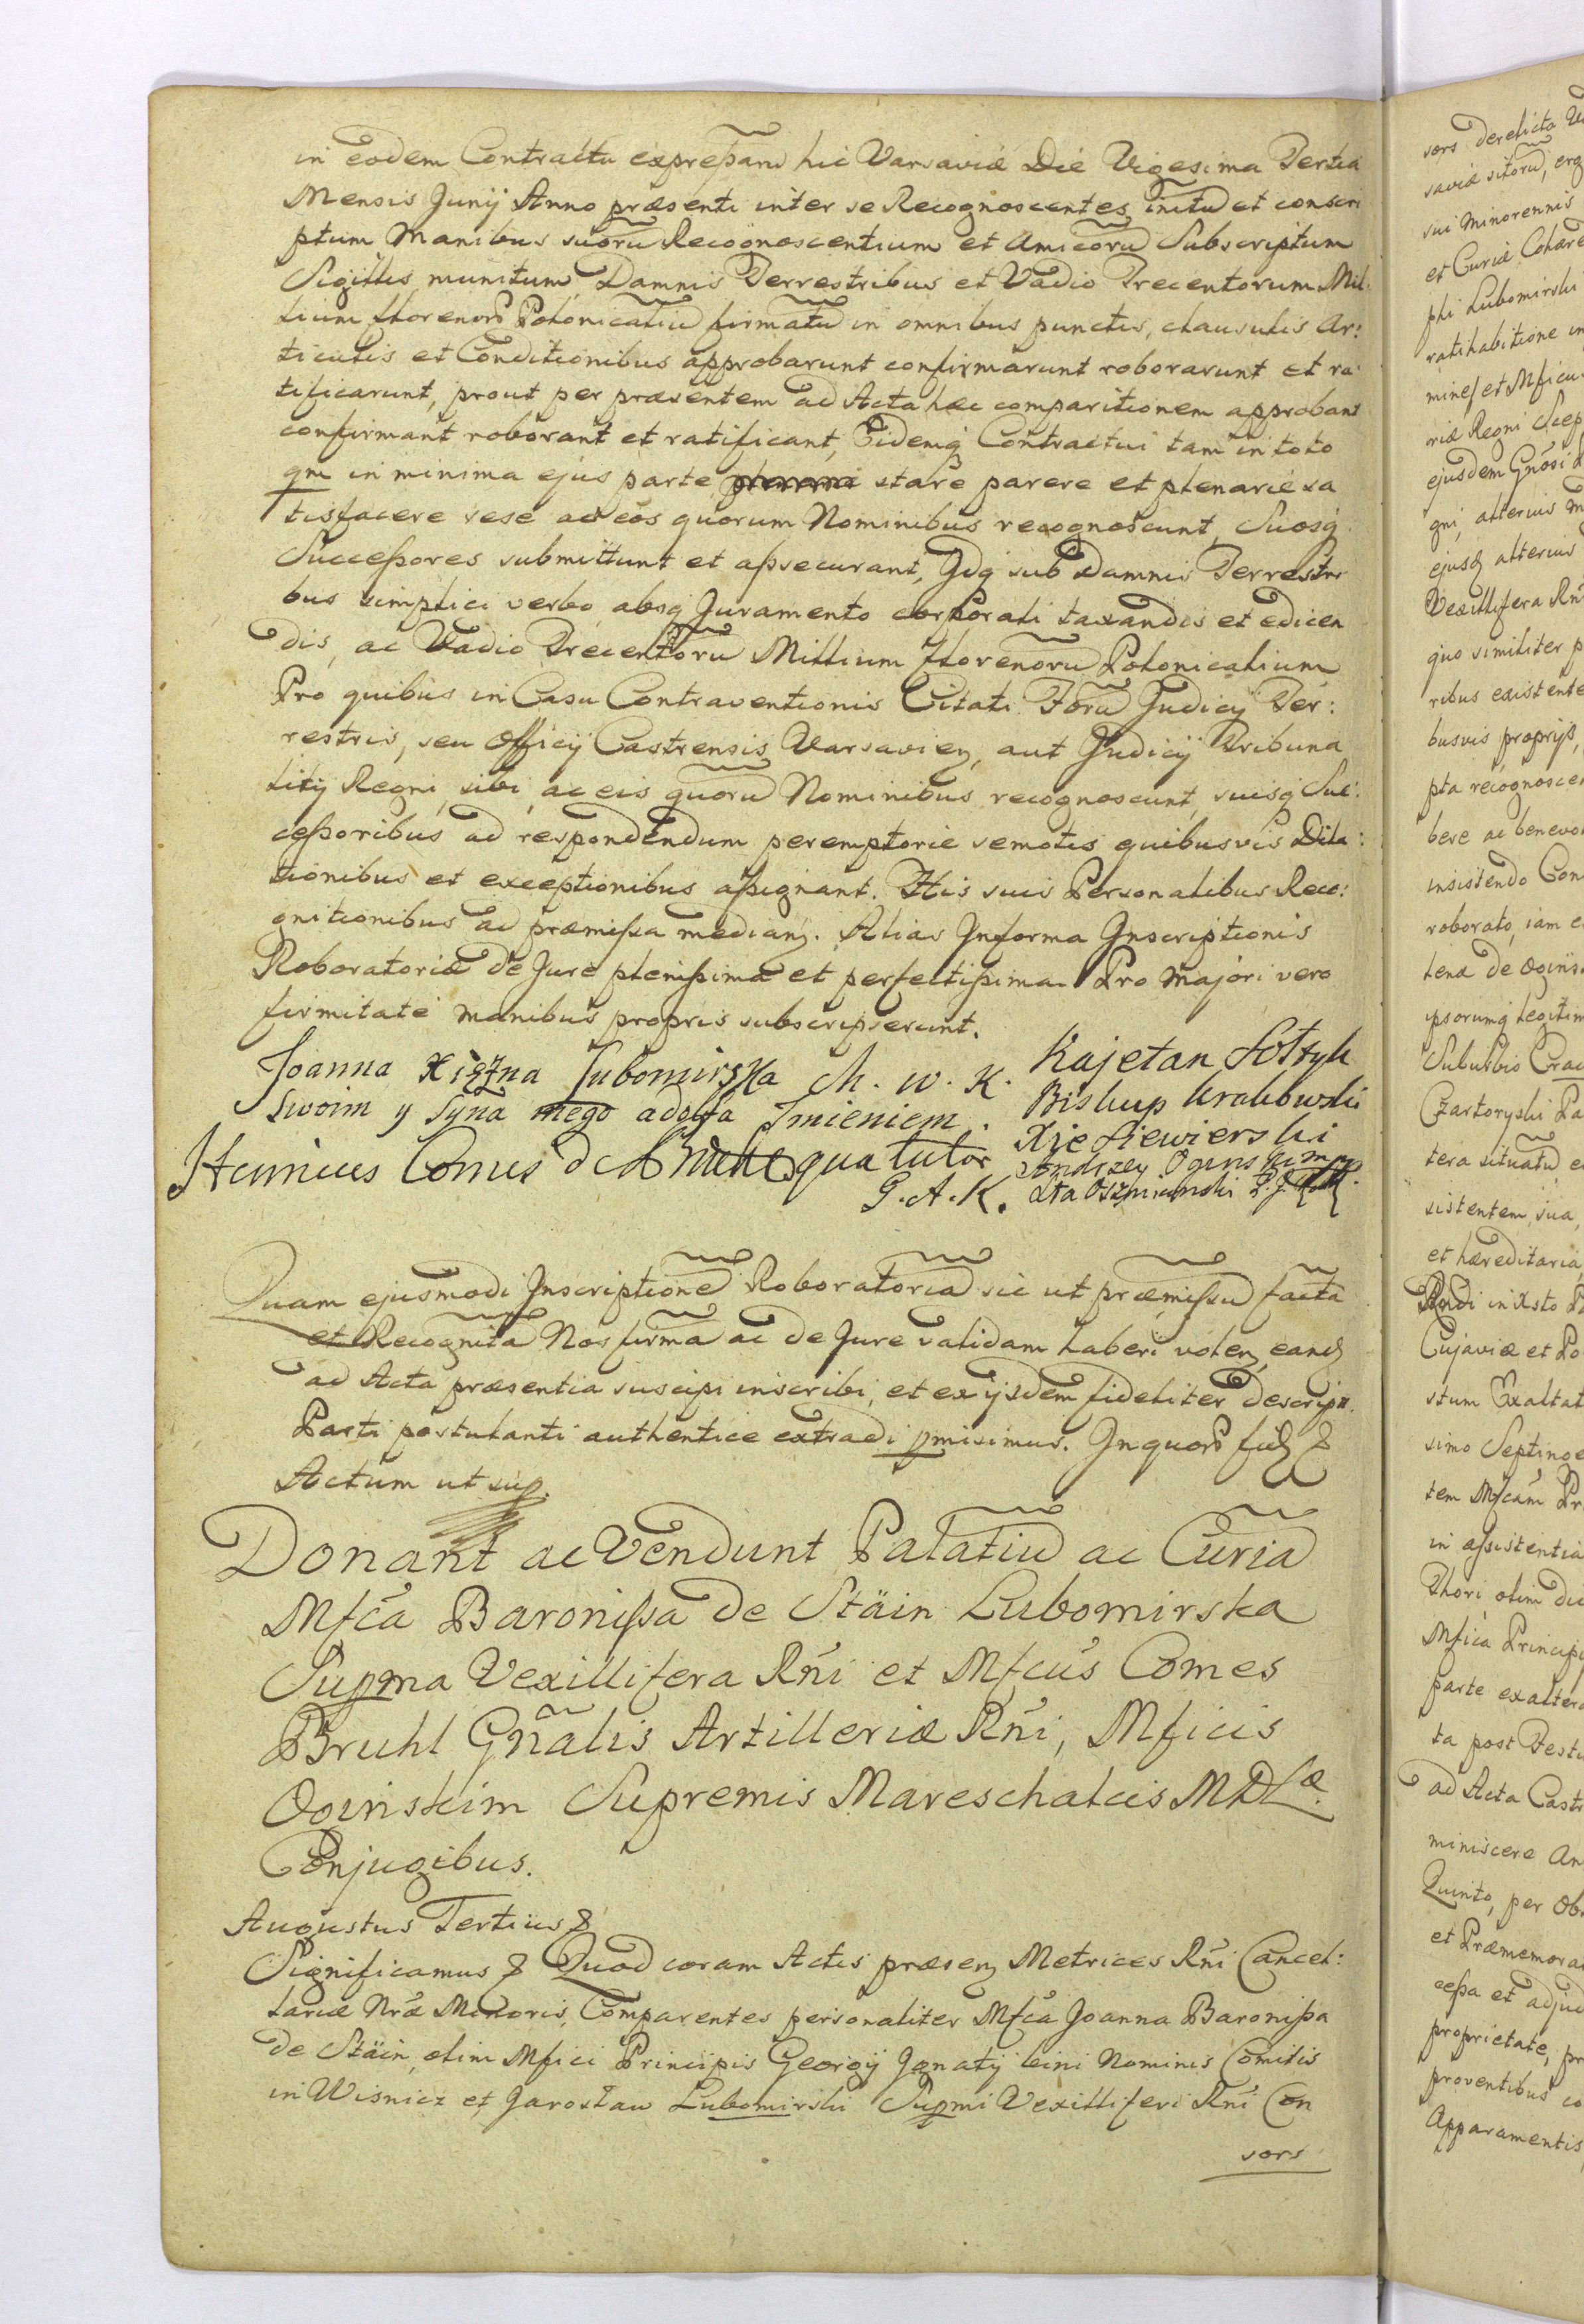 in eodem Contractu expressaru hic Varsaviæ Die Vigesima Tertia
Mensis Junij Anno præsenti inter se Recognoscentes initũ et conscri
ptum Manibus suorũ Recognoscentium et Amicorũ Subscriptum
Sigillis munitum, Damnis Terrestribus et Vadio Trecentorum Mil:
lium florenorũ Polonicaliũ firmatũ in omnibus punctis, clausulis Ar:
ticulis et Conditionibus approbarunt confirmarunt roborarunt et ra:
tificarunt, prout per præsentem ad Acta hæc comparitionem approbant
confirmant roborant et ratificant, Eidemq Contractui tam in toto
qm in minima ejus parte stare parere et plenarie sa
tisfacere sese ad eos quorum Nominibus recognoscunt, Suosq
Successores submittunt et assecurant, Idq sub Damnis Terrestri
bus simplici verbo absq Juramento corporali taxandis et edicen
dis, ac Vadio Trecentorũ Millium florenorũ Polonicalium
Pro quibus in Casu Contraventionis Citati Forũ Judicij Ter:
restris, seu Officij Castrensis Varsavien, aut Judicij Tribuna
litij Regni, sibi, ac eis quorũ Nominibus recognoscunt, suisq Suc:
cessoribus ad respondendum peremptorie semotis quibusvis Dila:
tionibus et exceptionibus assignant. His suis Personalibus Reco:
gnitionibus ad præmissa median. Alias Informa Inscriptionis
Roboratoriæ de Jure plenissima et perfectissima. Pro majori vero
firmitate manibus propris subscripserunt.
Joanna Xiężna Lubomirska Ch. w. K. Kajetan Sołtyk
Swoim y Syna mego adolfa Jmieniem. Biskup krakowski
Xże Siewierski
Henricus Comes de Bruhl qua tutor Andrzey Oginski mp
G. A. K. Sta Oszmianski
Quam ejusmodi Inscriptionẽ Roboratoriã sic ut præmissũ factã
et Recognitã Nos firmã ac de Jure validam haberi volen, eand
ad Acta præsentia suscipi inscribi, et ex ijsdem fideliter descrip.
Parti postulanti authentice extradi pmisimus. In quorũ fid &
Actum ut sup.
Donant ac Vendunt Palatiũ ac Curiã
Mfca Baronissa de Stäin Lubomirska
Supma Vexillifera Rñi et Mfcus Comes
Bruhl Gñalis Artilleriæ Rñi, Mficis
Oginskim Supremis Mareschalcis MDLæ.
Conjugibus.
Augustus Tertius &
Significamus & Quod coram Actis præsen Metrices Rñi Cancel:
lariæ Nræ Minoris, Comparentes personaliter Mfca Joanna Baronissa
de Stäin, olim Mfici Principis Georgij Ignatij bini Nominis Comitis
in Wisnicz et Jarosław Lubomirski Supmi Vexilliferi Rñi Con
sors
sors derelicta
saviæ sitorũ, erg
sui Minorennis
et Curiæ Cohære
phi Lubomirski
ratihabitione in
mines et Mficu
riæ Regni Scep
ejusdem Gñosi
gni, alterius
ejusd alterius
Vexillifera Rñi
quo similiter p
ribus existente
busvis proprijs,
pta recognoscen
bere ac benevol
insistendo Con
roborato, iam e
lenæ de Ogins
ipsorumq legitim
Suburbio Crac
Czartoryski Pa
tera situatũ e
sistentem, sua,
et hæreditaria
Cujaviæ et Po
stum Exaltat
simo Septinge
tem Mfcam Pr
in assistentia
Thori olim dic
Mfica Principi
parte ex altera
ta post Testa
ad Acta Castr
miniscere An
Quinto, per Ob
et Præmemora
cessa et adjud
proprietate, pr
proventibus co
Apparamentis